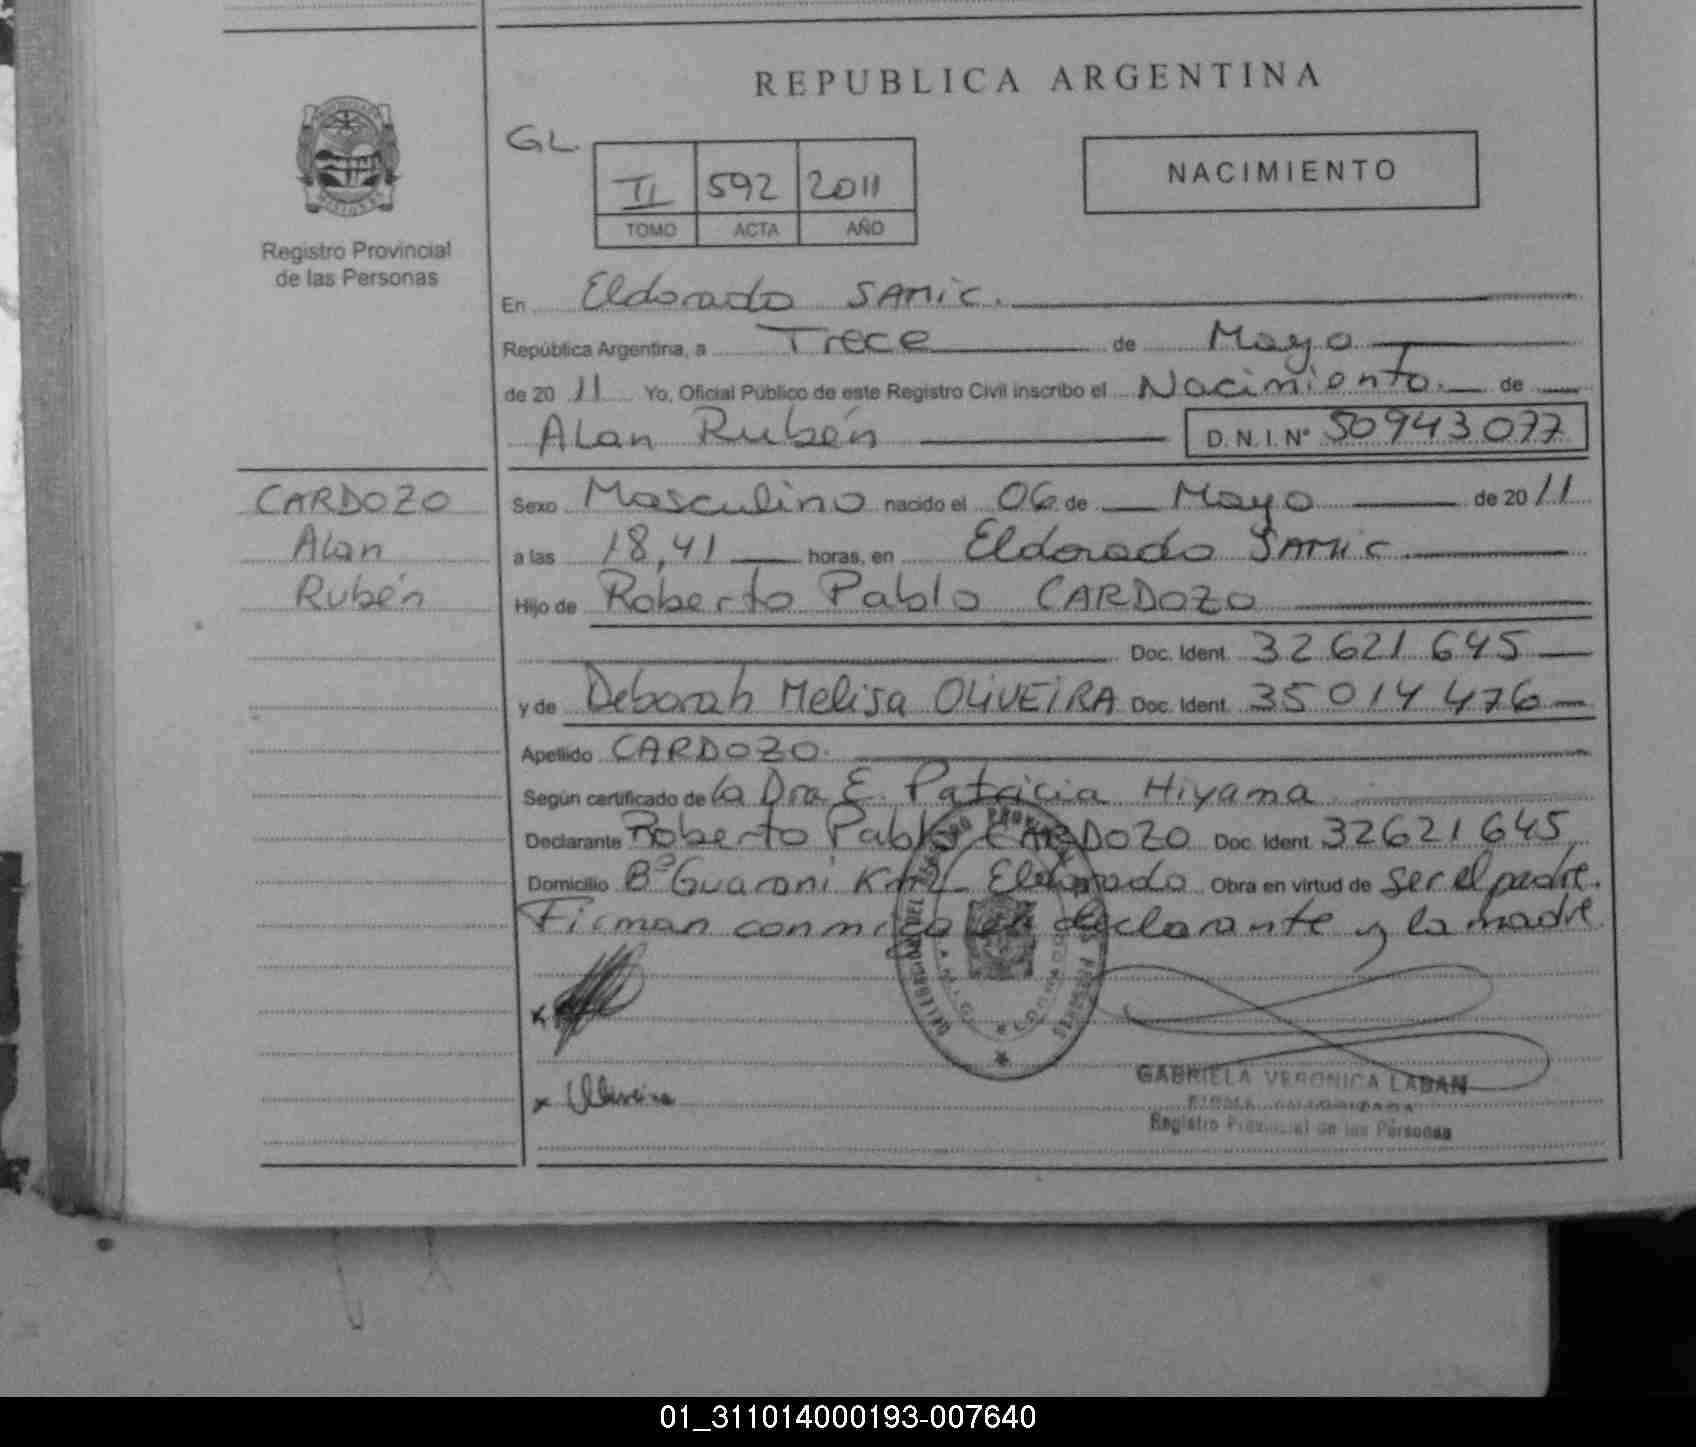 REPUBLICA ARGENTINA
GL.
II 592 2011
TOMO ACTA AÑO
NACIMIENTO
Registro Provincial
de las Personas
En Eldorado SAMIC.
República Argentina, a Trece de Mayo
de 2011 Yo, Oficial Público de este Registro Civil inscribo el Nacimiento. de
Alan Rubén D.N.I. Nº 50943077
CARDOZO
Alan
Rubén
Sexo Masculino nacido el 06 de Mayo de 2011
a las 18,41 horas, en Eldorado SAMIC
Hijo de Roberto Pablo CARDOZO
Doc. Ident. 32621645
y de Deborah Melisa OLIVEIRA Doc. Ident. 35014476
Apellido CARDOZO.
Según certificado de la Dra E. Patricia Hiyama
Declarante Roberto Pablo CARDOZO Doc. Ident. 32621645
Domicilio Bº Guarani Eldorado Obra en virtud de ser el padre.
Firman conmigo el declarante y la madre
x
x Oliveira
GABRIELA VERONICA LABAN
Registro Provincial de las Personas
01_311014000193-007640